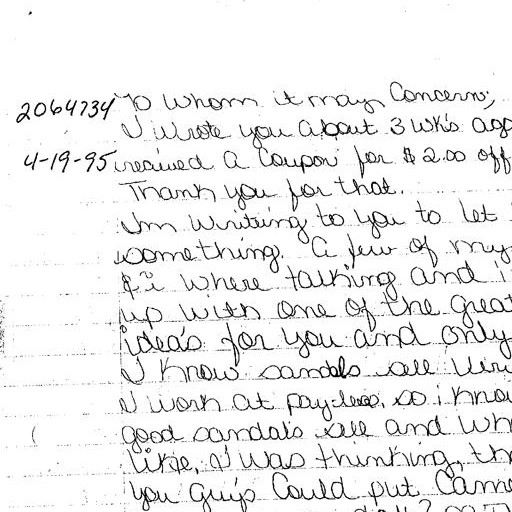 2064734 To whom it may Concern;
I wrote you about 3 wk's ago
4-19-95 i recieved a Coupon for $2.00 off
Thank you for that.
I'm writing to you to let
something. A few of my
& i where talking and i
up with one of the great
ideas for you and only
I know sandals sell
I work at pay-less, so i know
good sandals sell and
like, I was thinking,
you guys Could put Came